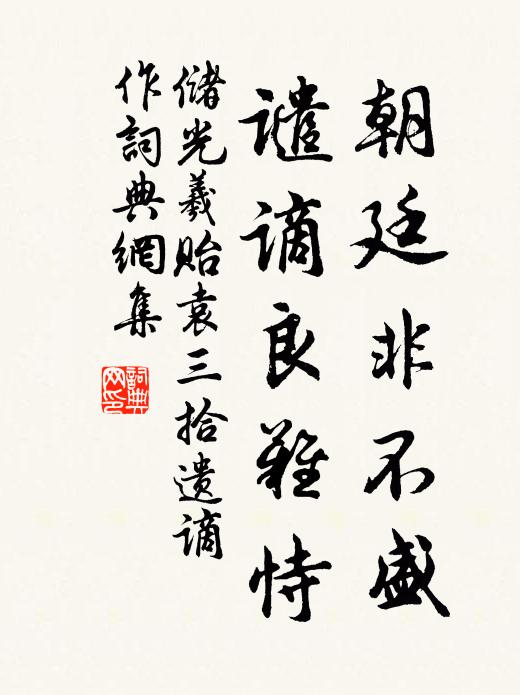 朝廷非不盛
譴謫良難恃
儲光羲貽袁三拾遺謫
作詞典網集
詞典
网印